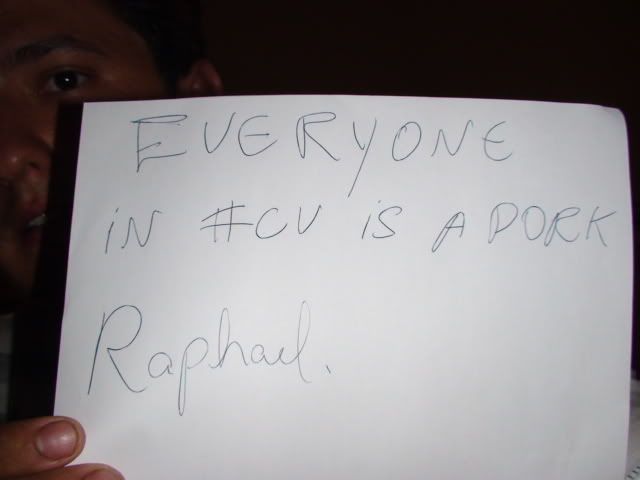 EVERYONE
iN #CV iS A DORK
Raphael.